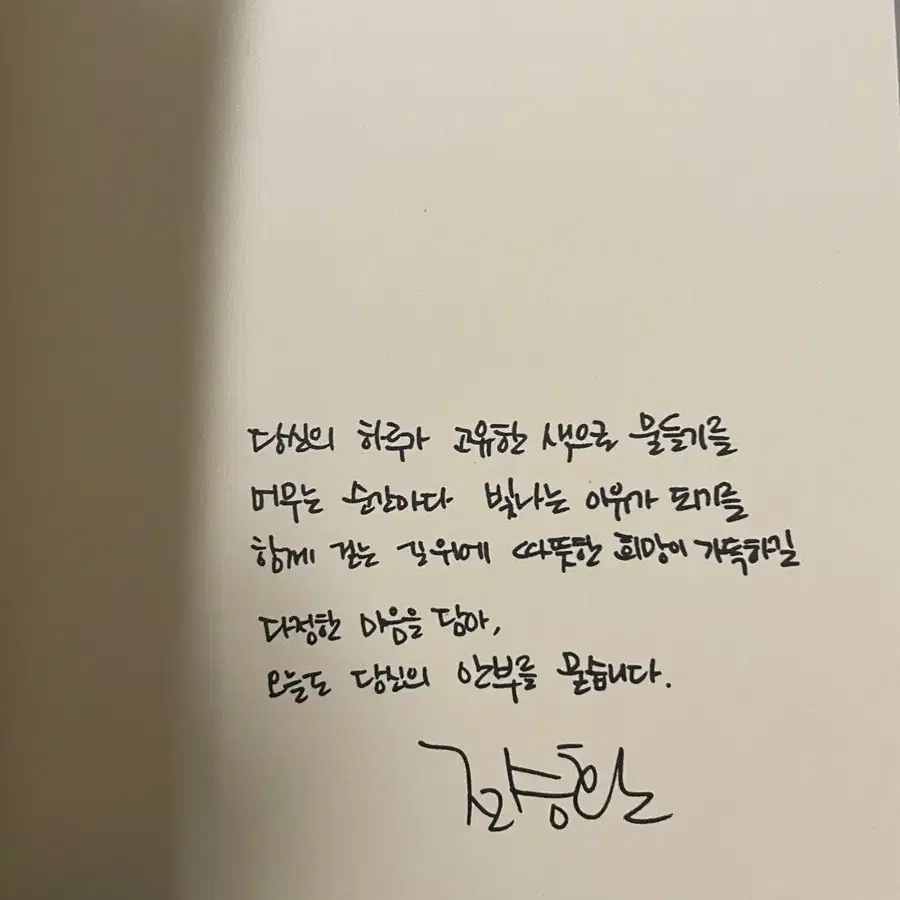 당신의 하루가 고유한 색으로 물들기를
머무는 순간마다 빛나는 이유가 되기를
함께 걷는 길위에 따뜻한 희망이 가득하길
다정한 마음을 담아,
오늘도 당신의 안부를 묻습니다.